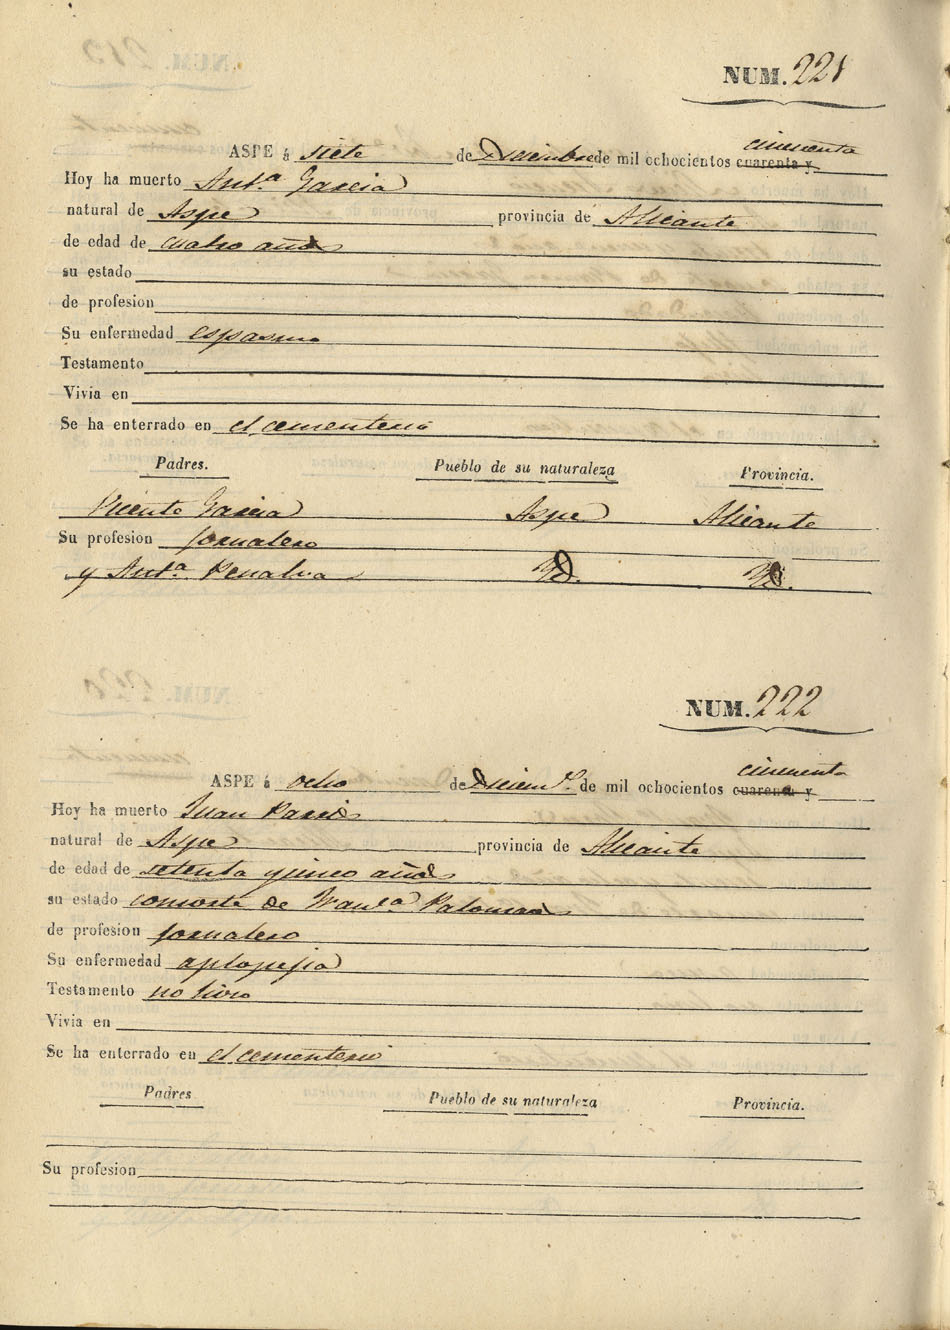 NUM. 221
cincuenta
ASPE á siete de Diciembre de mil ochocientos cuarenta y
Hoy ha muerto Ant.ª Garcia
natural de Aspe provincia de Alicante
de edad de cuatro años
su estado
de profesion
Su enfermedad espasmo
Testamento
Vivia en
Se ha enterrado en el cementerio
Padres. Pueblo de su naturaleza Provincia.
Vicente Garcia Aspe Alicante
Su profesion jornalero
y Ant.ª Penalva Yd. Yd.
NUM. 222
cincuenta
ASPE á ocho de Diciem.e de mil ochocientos cuarenta y
Hoy ha muerto Juan
natural de Aspe provincia de Alicante
de edad de setenta y cinco años
su estado consorte de Fran.ca
de profesion jornalero
Su enfermedad
Testamento no hizo
Vivia en
Se ha enterrado en el cementerio
Padres Pueblo de su naturaleza Provincia.
Su profesion